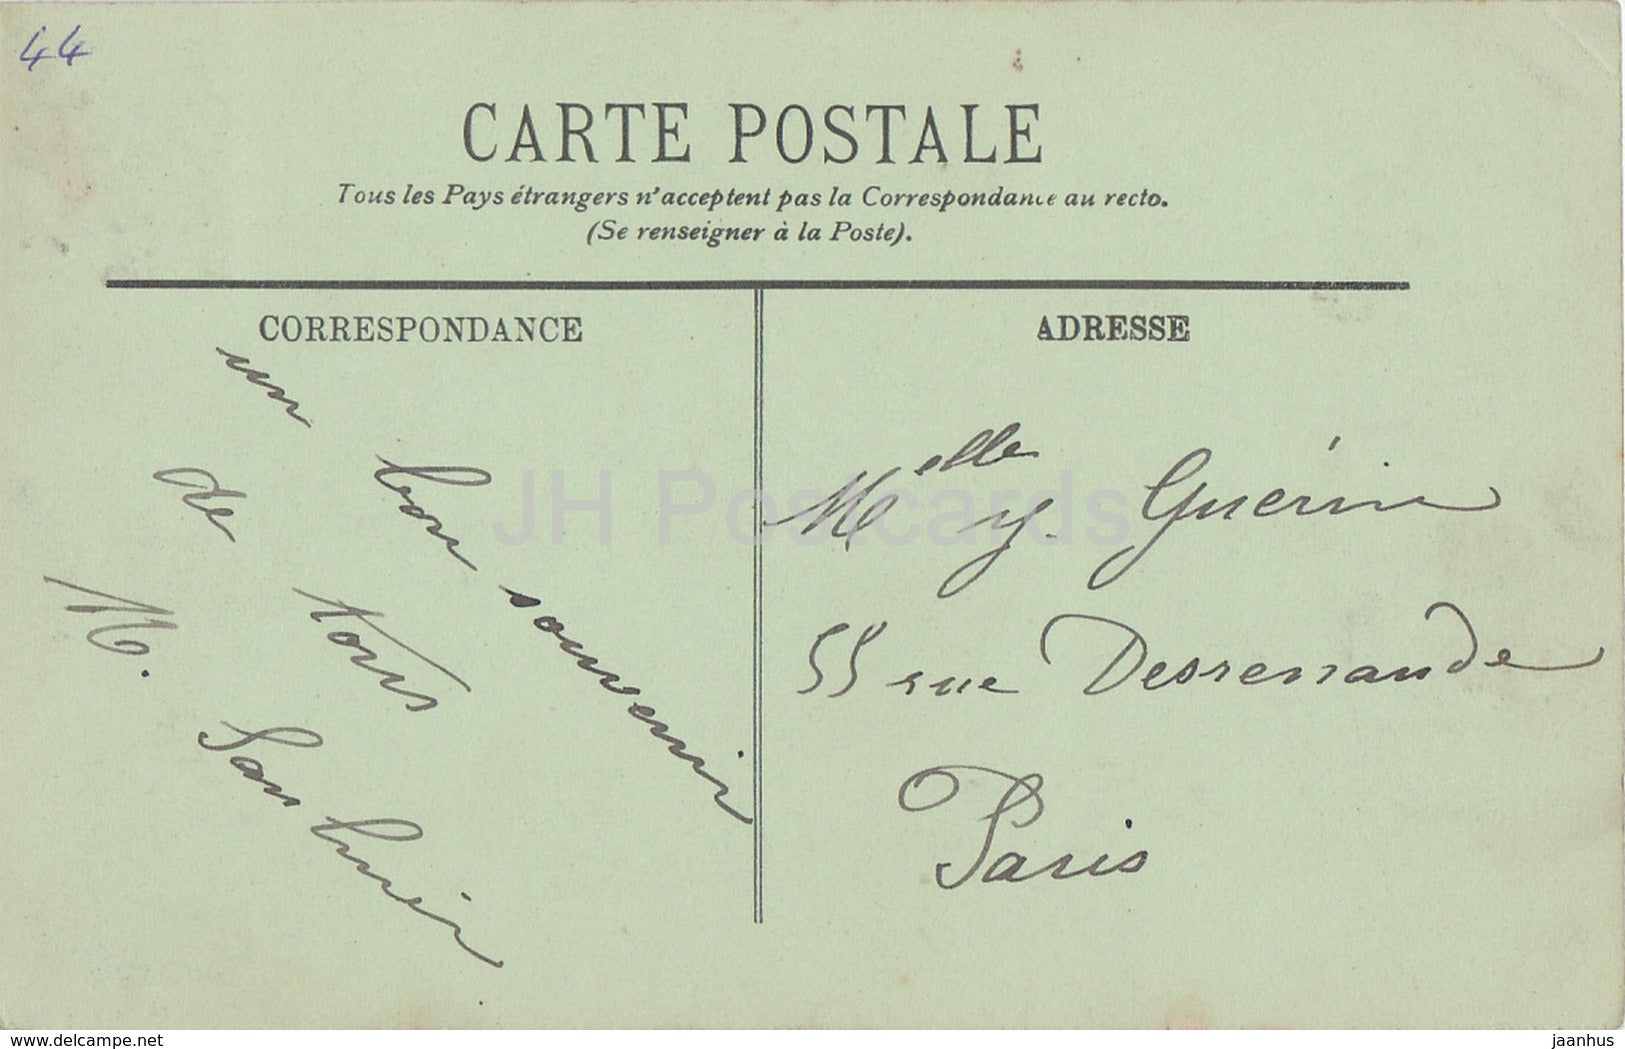 44
CARTE POSTALE
Tous les Pays étrangers n'acceptent pas la Correspondance au recto.
(Se renseigner à la Poste).
CORRESPONDANCE
un bon souvenir
de tous
M.
ADRESSE
Melle Y. Guérin
55 rue Desrenaude
Paris
JH Postcards
www.delcampe.net
jaanhus